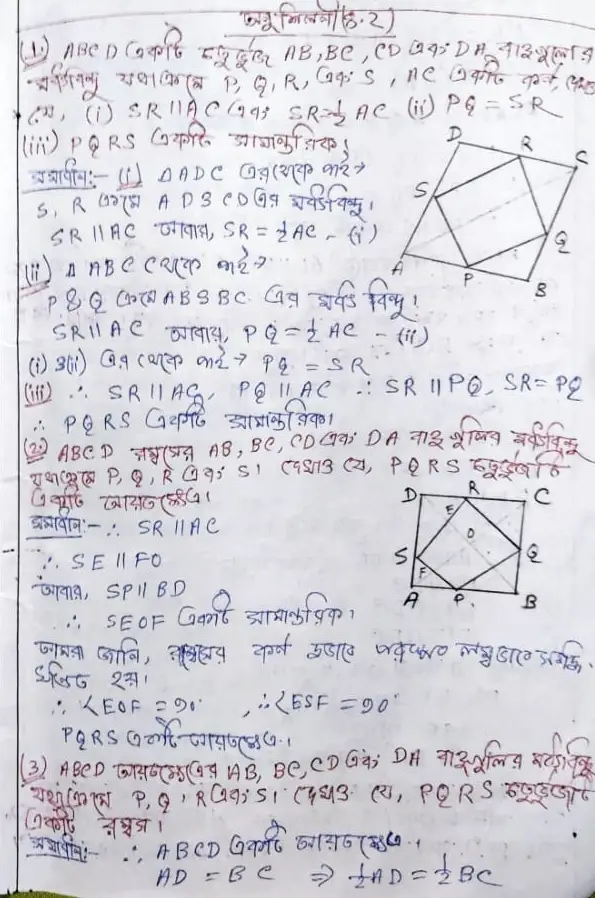 অনুশিলনী (8.2)
(1) ABCD একটি চতুর্ভুজ AB, BC, CD এবং DA বাহুগুলোর
মধ্যবিন্দু যথাক্রমে P, Q, R, এবং S, AC একটি কর্ণ, দেখাও
যে, (i) SR || AC এবং SR = 1/2 AC (ii) PQ = SR
(iii) PQRS একটি সামান্তরিক।
সমাধান:- (i) Δ ADC এর থেকে পাই →
S, R ক্রমে AD ও CD এর মধ্যবিন্দু।
SR || AC আবার, SR = 1/2 AC - (i)
(ii) Δ ABC থেকে পাই →
P & Q ক্রমে AB ও BC এর মধ্য বিন্দু।
SR || AC আবার, PQ = 1/2 AC - (ii)
(i) ও (ii) এর থেকে পাই → PQ = SR
(iii) ∴ SR || AC, PQ || AC ∴ SR || PQ, SR = PQ
∴ PQRS একটি সামান্তরিক।
D R C
S Q
A P B
(2) ABCD রম্বসের AB, BC, CD এবং DA বাহুগুলির মধ্যবিন্দু
যথাক্রমে P, Q, R এবং S। দেখাও যে, PQRS চতুর্ভুজটি
একটি আয়তক্ষেত্র।
সমাধান:- ∴ SR || AC
∴ SE || FO
আবার, SP || BD
∴ SEOF একটি সামান্তরিক।
D R C
E O
S Q
F
A P B
আমরা জানি, রম্বসের কর্ণ পরস্পর লম্বভাবে সমদ্বি-
খণ্ডিত হয়।
∴ ∠EOF = 90° ∴ ∠ESF = 90°
PQRS একটি আয়তক্ষেত্র।
(3) ABCD আয়তক্ষেত্রের AB, BC, CD এবং DA বাহুগুলির মধ্যবিন্দু
যথাক্রমে P, Q, R এবং S। দেখাও যে, PQRS চতুর্ভুজটি
একটি রম্বস।
সমাধান:- ∴ ABCD একটি আয়তক্ষেত্র।
AD = BC ⇒ 1/2 AD = 1/2 BC